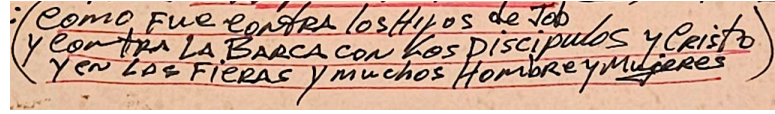 :(Como Fue contra los Hijos de Job
y contra LA BARCA CON Los Discipulos y Cristo
y en Las Fieras y muchos Hombre y Mujeres)